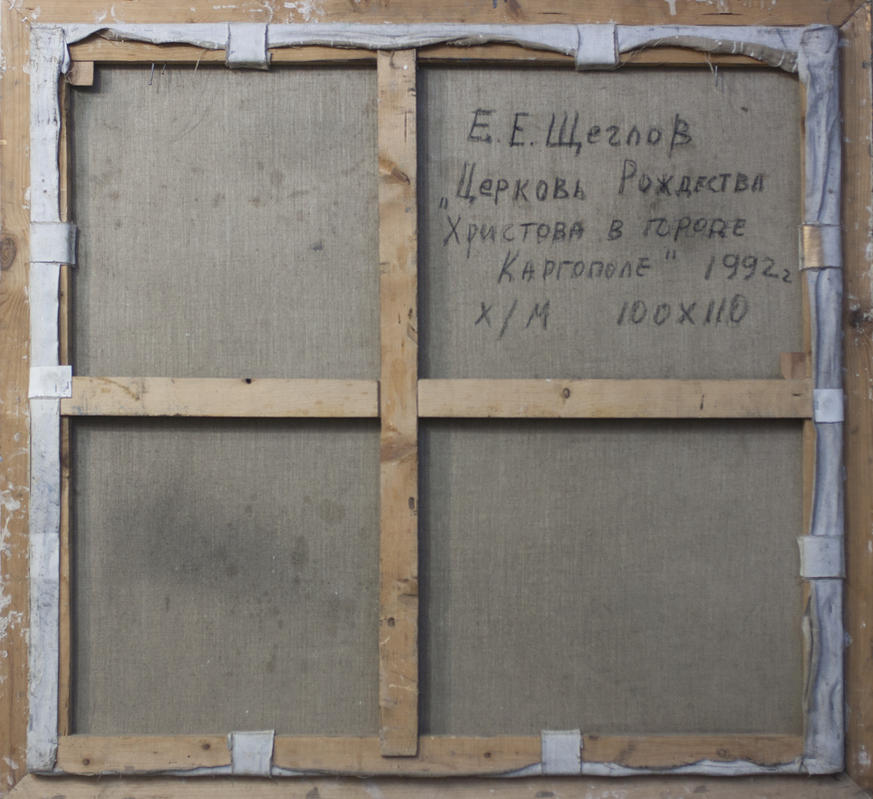 Е. Е. Щеглов
„Церковь Рождества
Христова в городе
Каргополе" 1992г
х/м 100х110